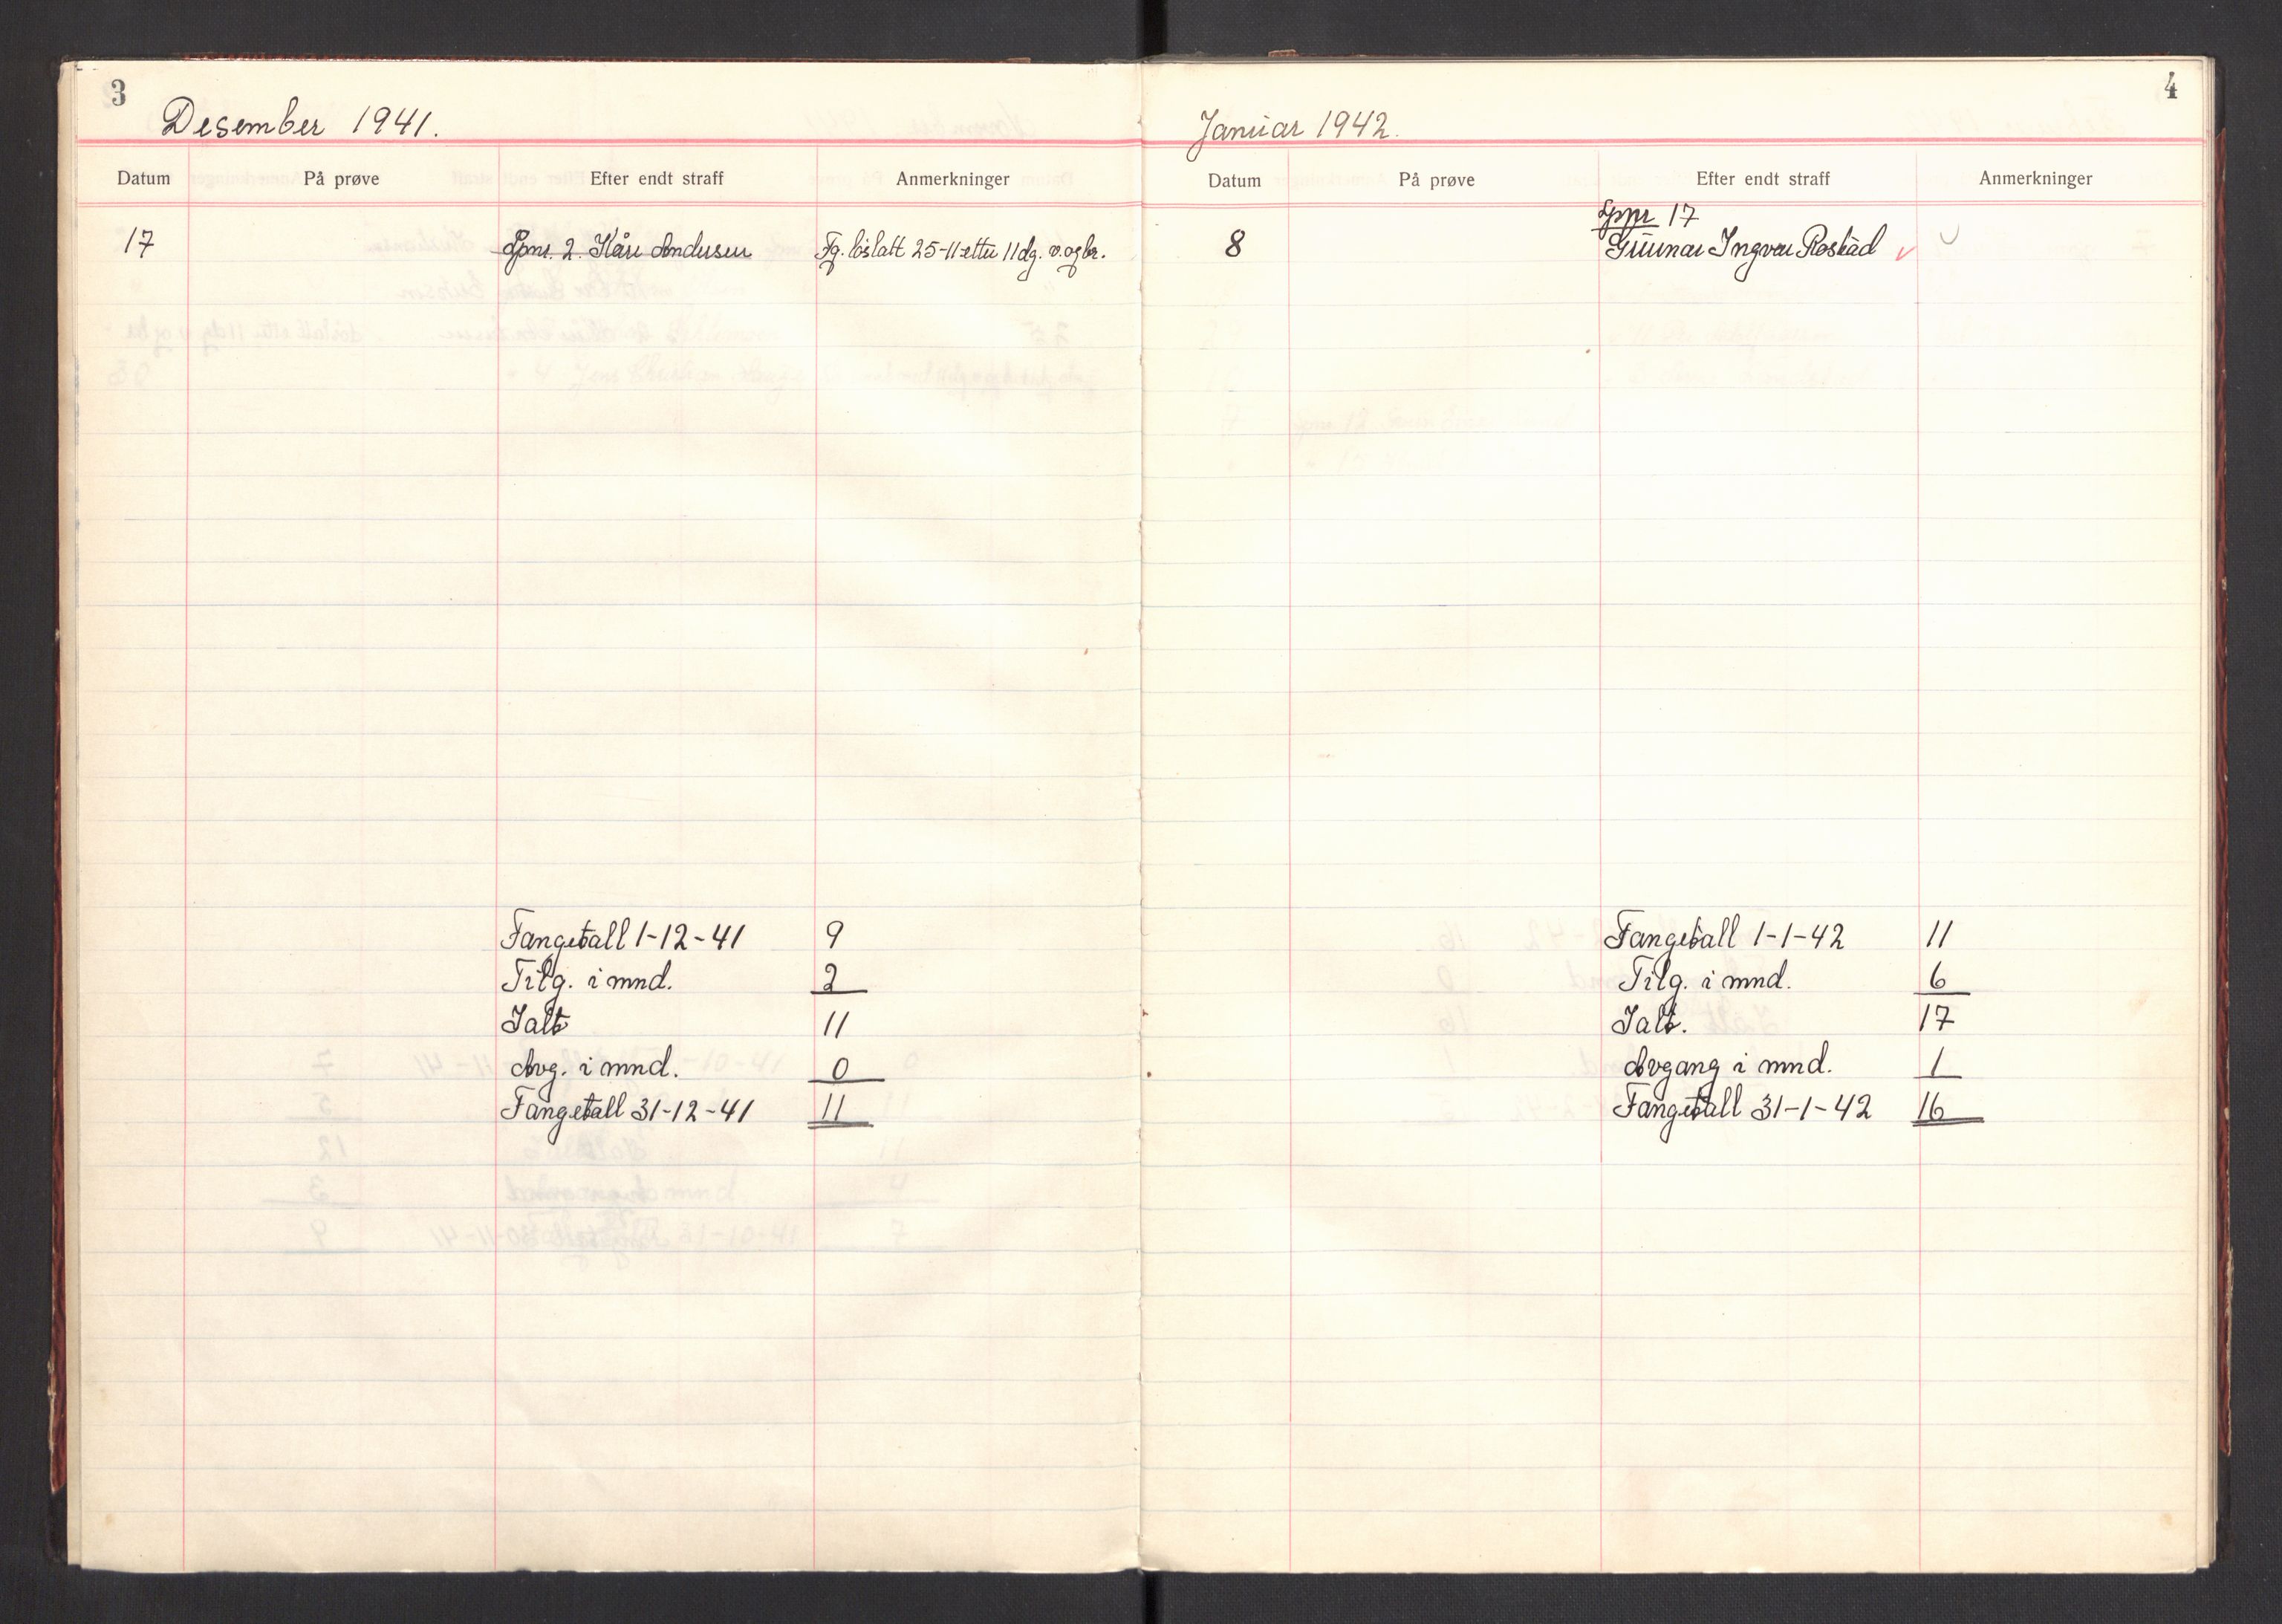 3
Desember 1941.
Datum På prøve Efter endt straff Anmerkninger
17 Lpnr. 2. Kåre Andersen Fg. löslatt 25-11 etter 11 dg. v. og br.
Fangetall 1-12-41 9
Tilg. i mnd. 2
Ialt 11
Avg. i mnd. 0
Fangetall 31-12-41 11
4
Januar 1942.
Datum På prøve Efter endt straff Anmerkninger
Lpnr 17
8 Gunnar Ingvar Rostad
Fangetall 1-1-42 11
Tilg. i mnd. 6
Ialt. 17
Avgang i mnd. 1
Fangetall 31-1-42 16